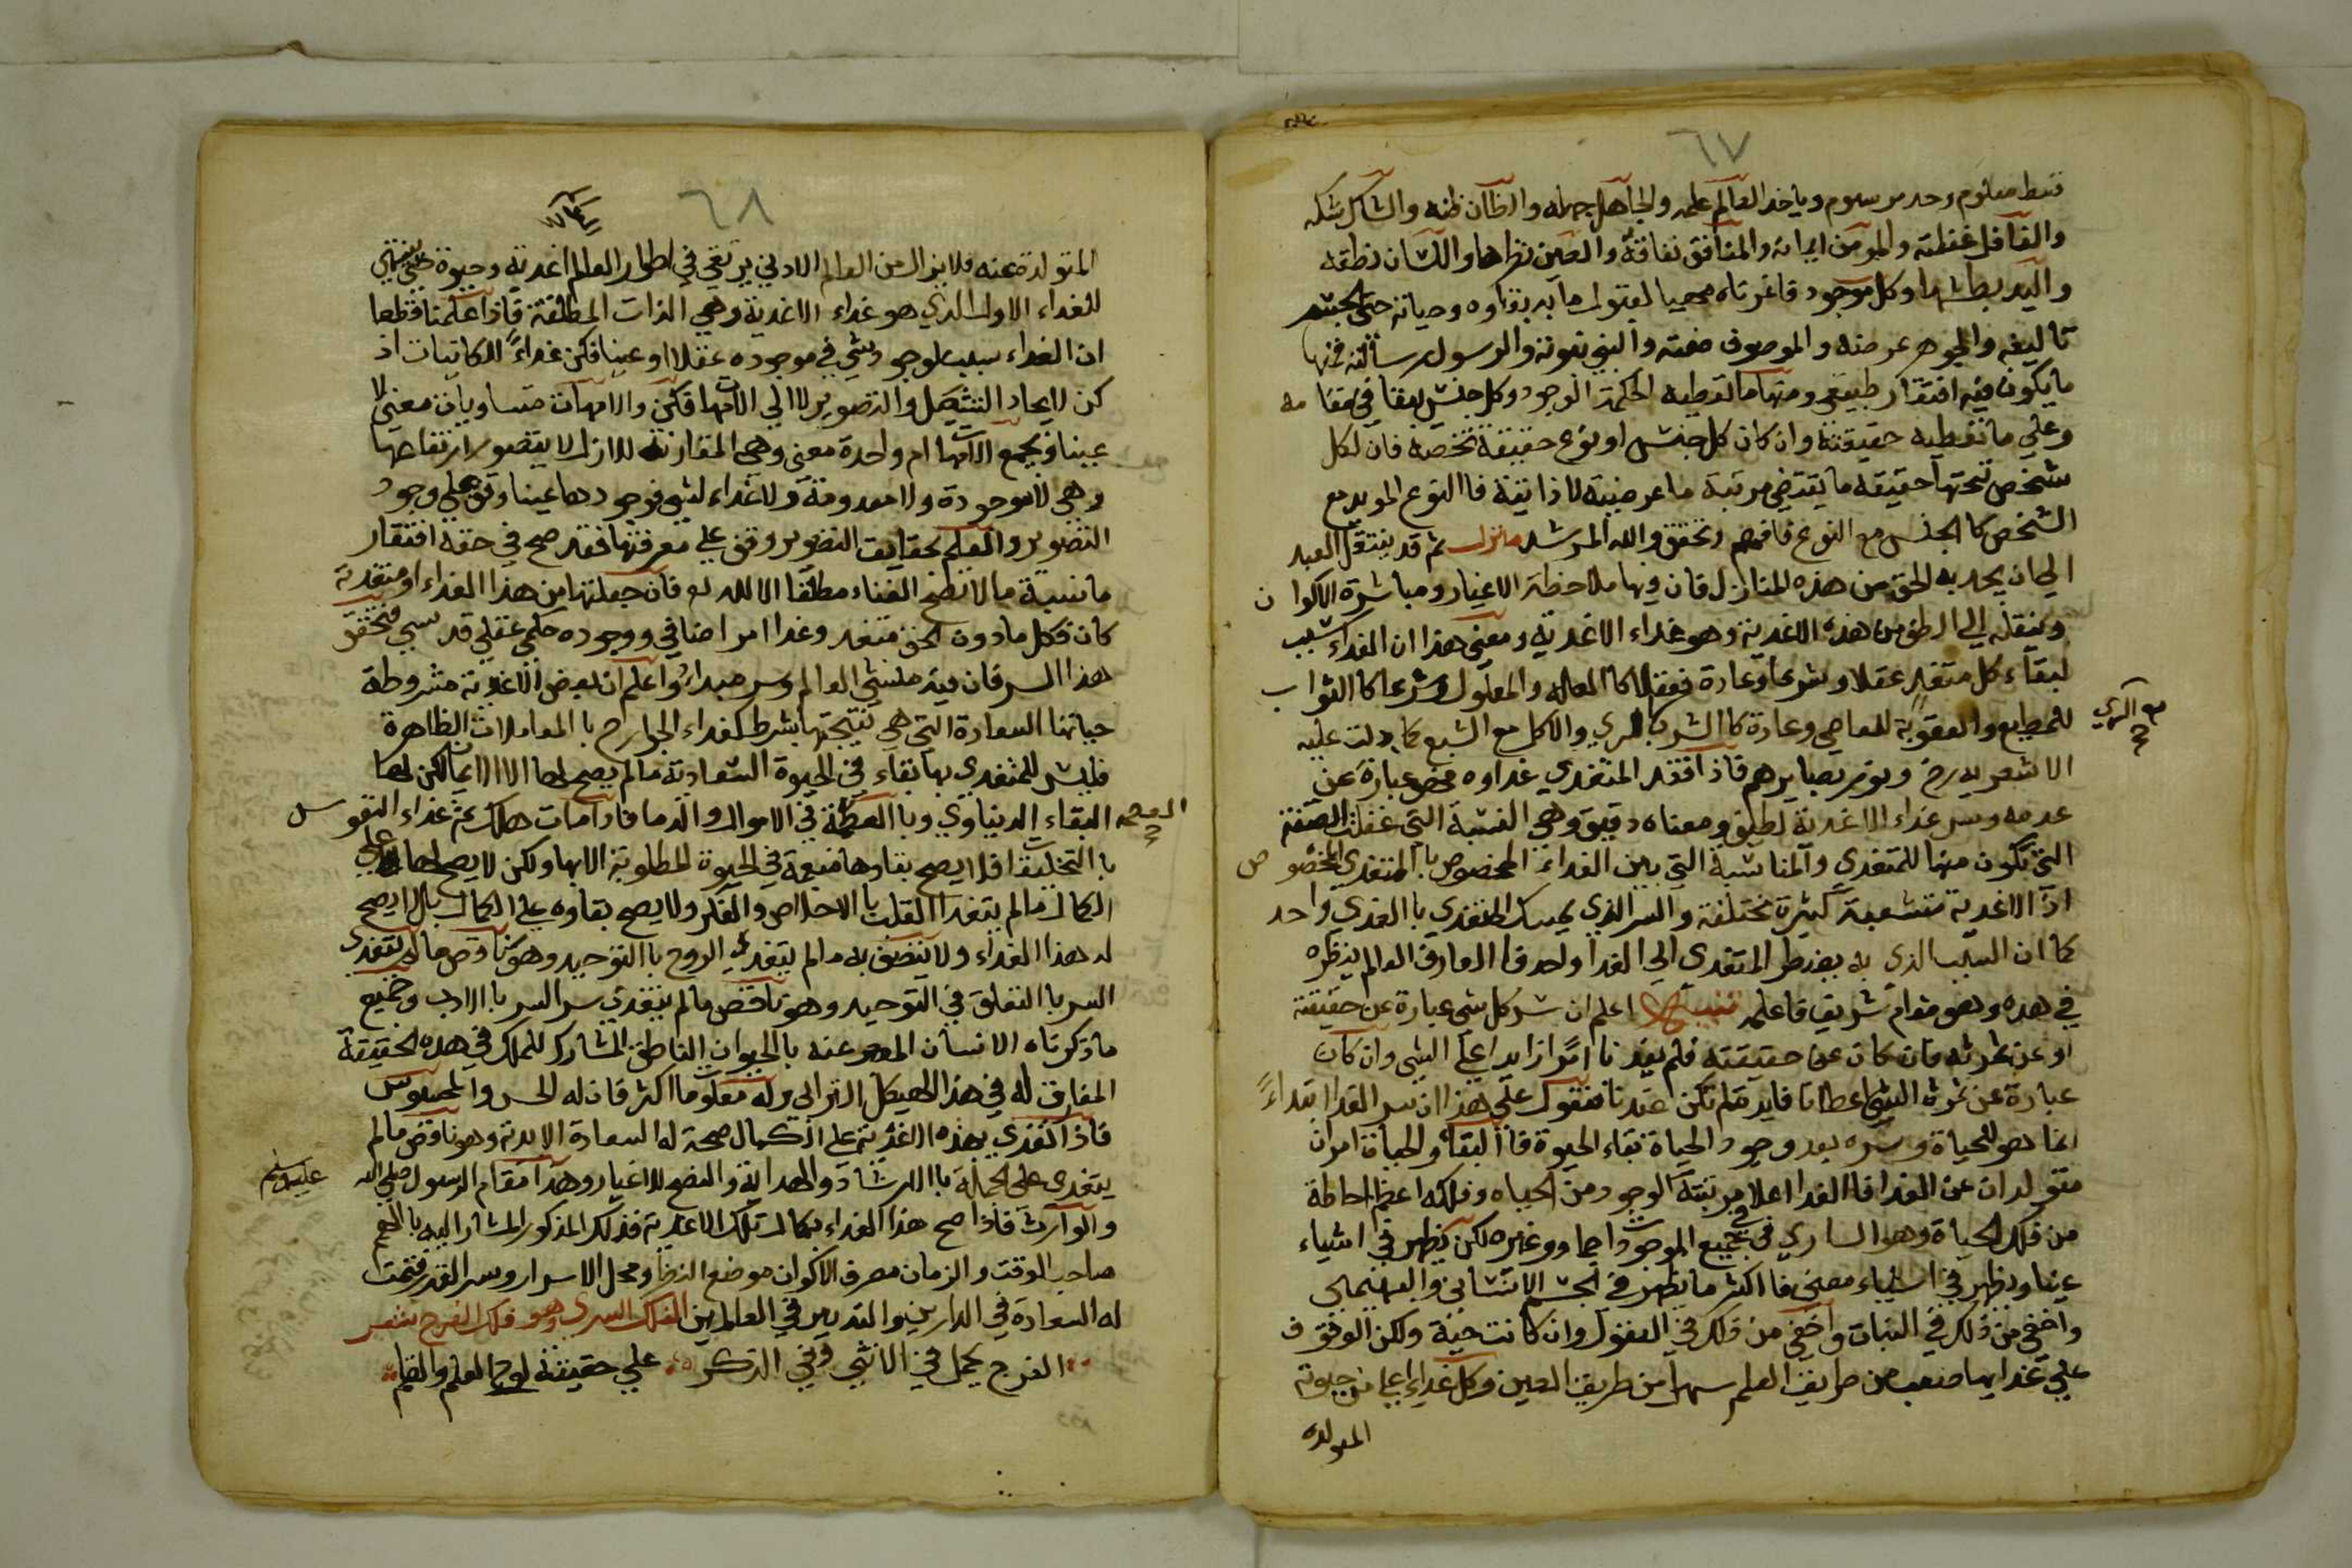 ٦٧
قسط معلوم وحد مرسوم وياخذ العالم علمه والجاهل جهله والظان ظنه والشاك شكه
والغافل غفلته والمومن ايمانه والمنافق نفاقه والعين نظرها واللسان نطقه
واليد بطشها وكل موجود قاعرتاه مهيا لقبول ما به بقاوه وحياته حتى الجسم
تاليفه والجوهر عرضه والموصوف صفته والنبي نبوته والرسول رسالته فمنها
ما يكون فيه افتقار طبيعي ومنها ما تعطيه الحكمة الوجود وكل جنس يبقا في مقامه
وعلي ما تعطيه حقيقته وان كان كل جنس او نوع حقيقة تخصه فان لكل
شخص تحتها حقيقة ما يقتضي مرتبة ما عرضية لا ذاتية فالنوع الموبد مع
الشخص كا الجنس مع النوع فافهم وتحقق والله المرشد منزل ثم قد ينتقل العبد
الي ان يحد به الحق من هذه المنازل فان فيها ملاحظة الاغيار ومباشرة الاكوان
وينقله الي الطف من هذه الاغدية وهو غداء الاغدية ومعني هذا ان الغداء سبب
لبقاء كل متغد عقلا وشرعا وعادة فعقلا كا العلة والمعلول وشرعا كا الثواب
للمطيع والعقوبة للعاصي وعادة كا الشرب با لري والاكل مع الشبع كما دلت عليه
مع الري
الاشعريه رض ونور بصايرهم فاذا فقد المتغدي غداوه فهو عبارة عن
عدمه وسر غداء الاغدية لطيف ومعناه دقيق وهي النسبة التي غفلت الصفة
التي تكون منها للمتغدي والمناسبة التي بين الغداء المخصوص با المتغدي المخصوص
اذ الاغدية متشعبة كثيرة مختلفة والسر الذي يمسك المتغدي با الغدي واحد
كما ان السبب الذي به يضطر المتغدي الي الغدا واحد فا العارف العالم ينظره
في هذه وهو مقام شريف فاعلمه تنبيه اعلم ان سر كل شي عبارة عن حقيقته
او عن ثمرته فان كان عن حقيقته فلم يفدنا امرا زايدا علي الشي وان كان
عبارة عن ثمرة الشي اعطانا فايدة لم تكن عندنا فنقول علي هذا ان سر الغدا ابتداءً
انما هو للحياة وسره بعد وجود الحياة بقاء الحيوة فا البقاء والحياة امران
متولدان عن الغدا فا الغدا اعلا مرتبة الوجود من الحياه وفلكه اعظم احاطة
من فلك الحياة وهو الساري في جميع الموجودات جماد وغيره لكن يظهر في اشياء
عينا ويظهر في اشياء معني فا اكثر ما يظهر في الجسم الانساني والبهيمي
واخفي من ذلك في النبات واخفي من ذلك في العقول وان كانت حية ولكن الوقوف
علي غدايها صعب من طريق العلم سهل من طريق العين وكل غداء اعلي من حيوته
المتولده
٦٨
المتولدة عنه فلا يزال من العالم الادني يرتقي في اطوار العالم اغدية وحيوة حتي ينتهي
للغداء الاول الذي هو غداء الاغدية وهي الذات المطلقة فاذا علمنا قطعا
ان الغداء سبب لوجود شي في موجوده عقلا او عينا فكن غداءً للكاينات اذ
كن لايجاد التشكيل والتصوير لا الي الامهات فكن والامهات متساويان معني لا
عينا ويجمع الامهات ام واحدة معني وهي المقارنة للازل لا يتصور ارتفاعها
وهي لا موجودة ولا معدومة ولا غداء لشي فوجودها عينا وقف علي وجود
التصوير والعلم بحقايق التصوير وقف علي معرفتها فقد صح في حقه افتقار
ما نسبة ما لا يصح الغناء مطلقا الا لله تع فان جعلتها من هذا الغداء او متغدية
كان فكل ما دون الحق متغد وغدا امر اضافي ووجوده حلمي عقلي قدسي فتحقق
هذا السر فان فيه منشي العالم وسر مبداه واعلم ان بعض الاغدية مشروطة
حياتها السعادة التي هي نتيجتها بشرط كغداء الجوارح با المعاملات الظاهرة
فليس للمتغدي بها بقاء في الحيوة السعادية ما لم يصح لها الا الايمان لكن لها
البقاء الدنياوي وبا العظمة في الاموال والدما فاذا مات هلك ثم غداء النفوس
العصمه
با التخليات فلا يصح بقاوها منعمة في الحيوة المطلوبة الا بها ولكن لا يصح لها علي
الكمال ما لم يتغدا القلب با الاخلاص والفكر ولا يصح بقاوه علي الكمال بل لا يصح
له هذا الغداء ولا يتصف به ما لم يتغدي الروح با التوحيد وهو ناقص ما لم يتغدي
السر با التعلق في التوحيد وهو ناقص ما لم يتغدي سر السر با الادب وجميع
ما ذكرناه الانسان المعبر عنه بالحيوان الناطق المشارك للملك في هذه الحقيقة
المفارق له في هذا الهيكل الترابي وله معلوما اكثر فان له الحس والمحسوس
فاذا تغدي بهذه الاغدية علي الكمال صحت له السعادة الابدية وهو ناقص ما لم
يتغدي علي الجملة با الارشاد والهداية والنصح للاغيار وهذا مقام الرسول صلي الله عليه وسلم
والوارث فاذا صح هذا الغداء بكمال تلك الاغدية فذلك المذكور المشار اليه با العلم
صاحب الوقت والزمان مصرف الاكوان موضع النظر ومحل الاسرار وسر القدر فتمت
له السعادة في الدارين والتدبير في العالمين الفلك السري وهو فلك الفرج شعر
الفرج يحمل في الانثي وفي الذكر علي حقيقة لوح العلم والقلم